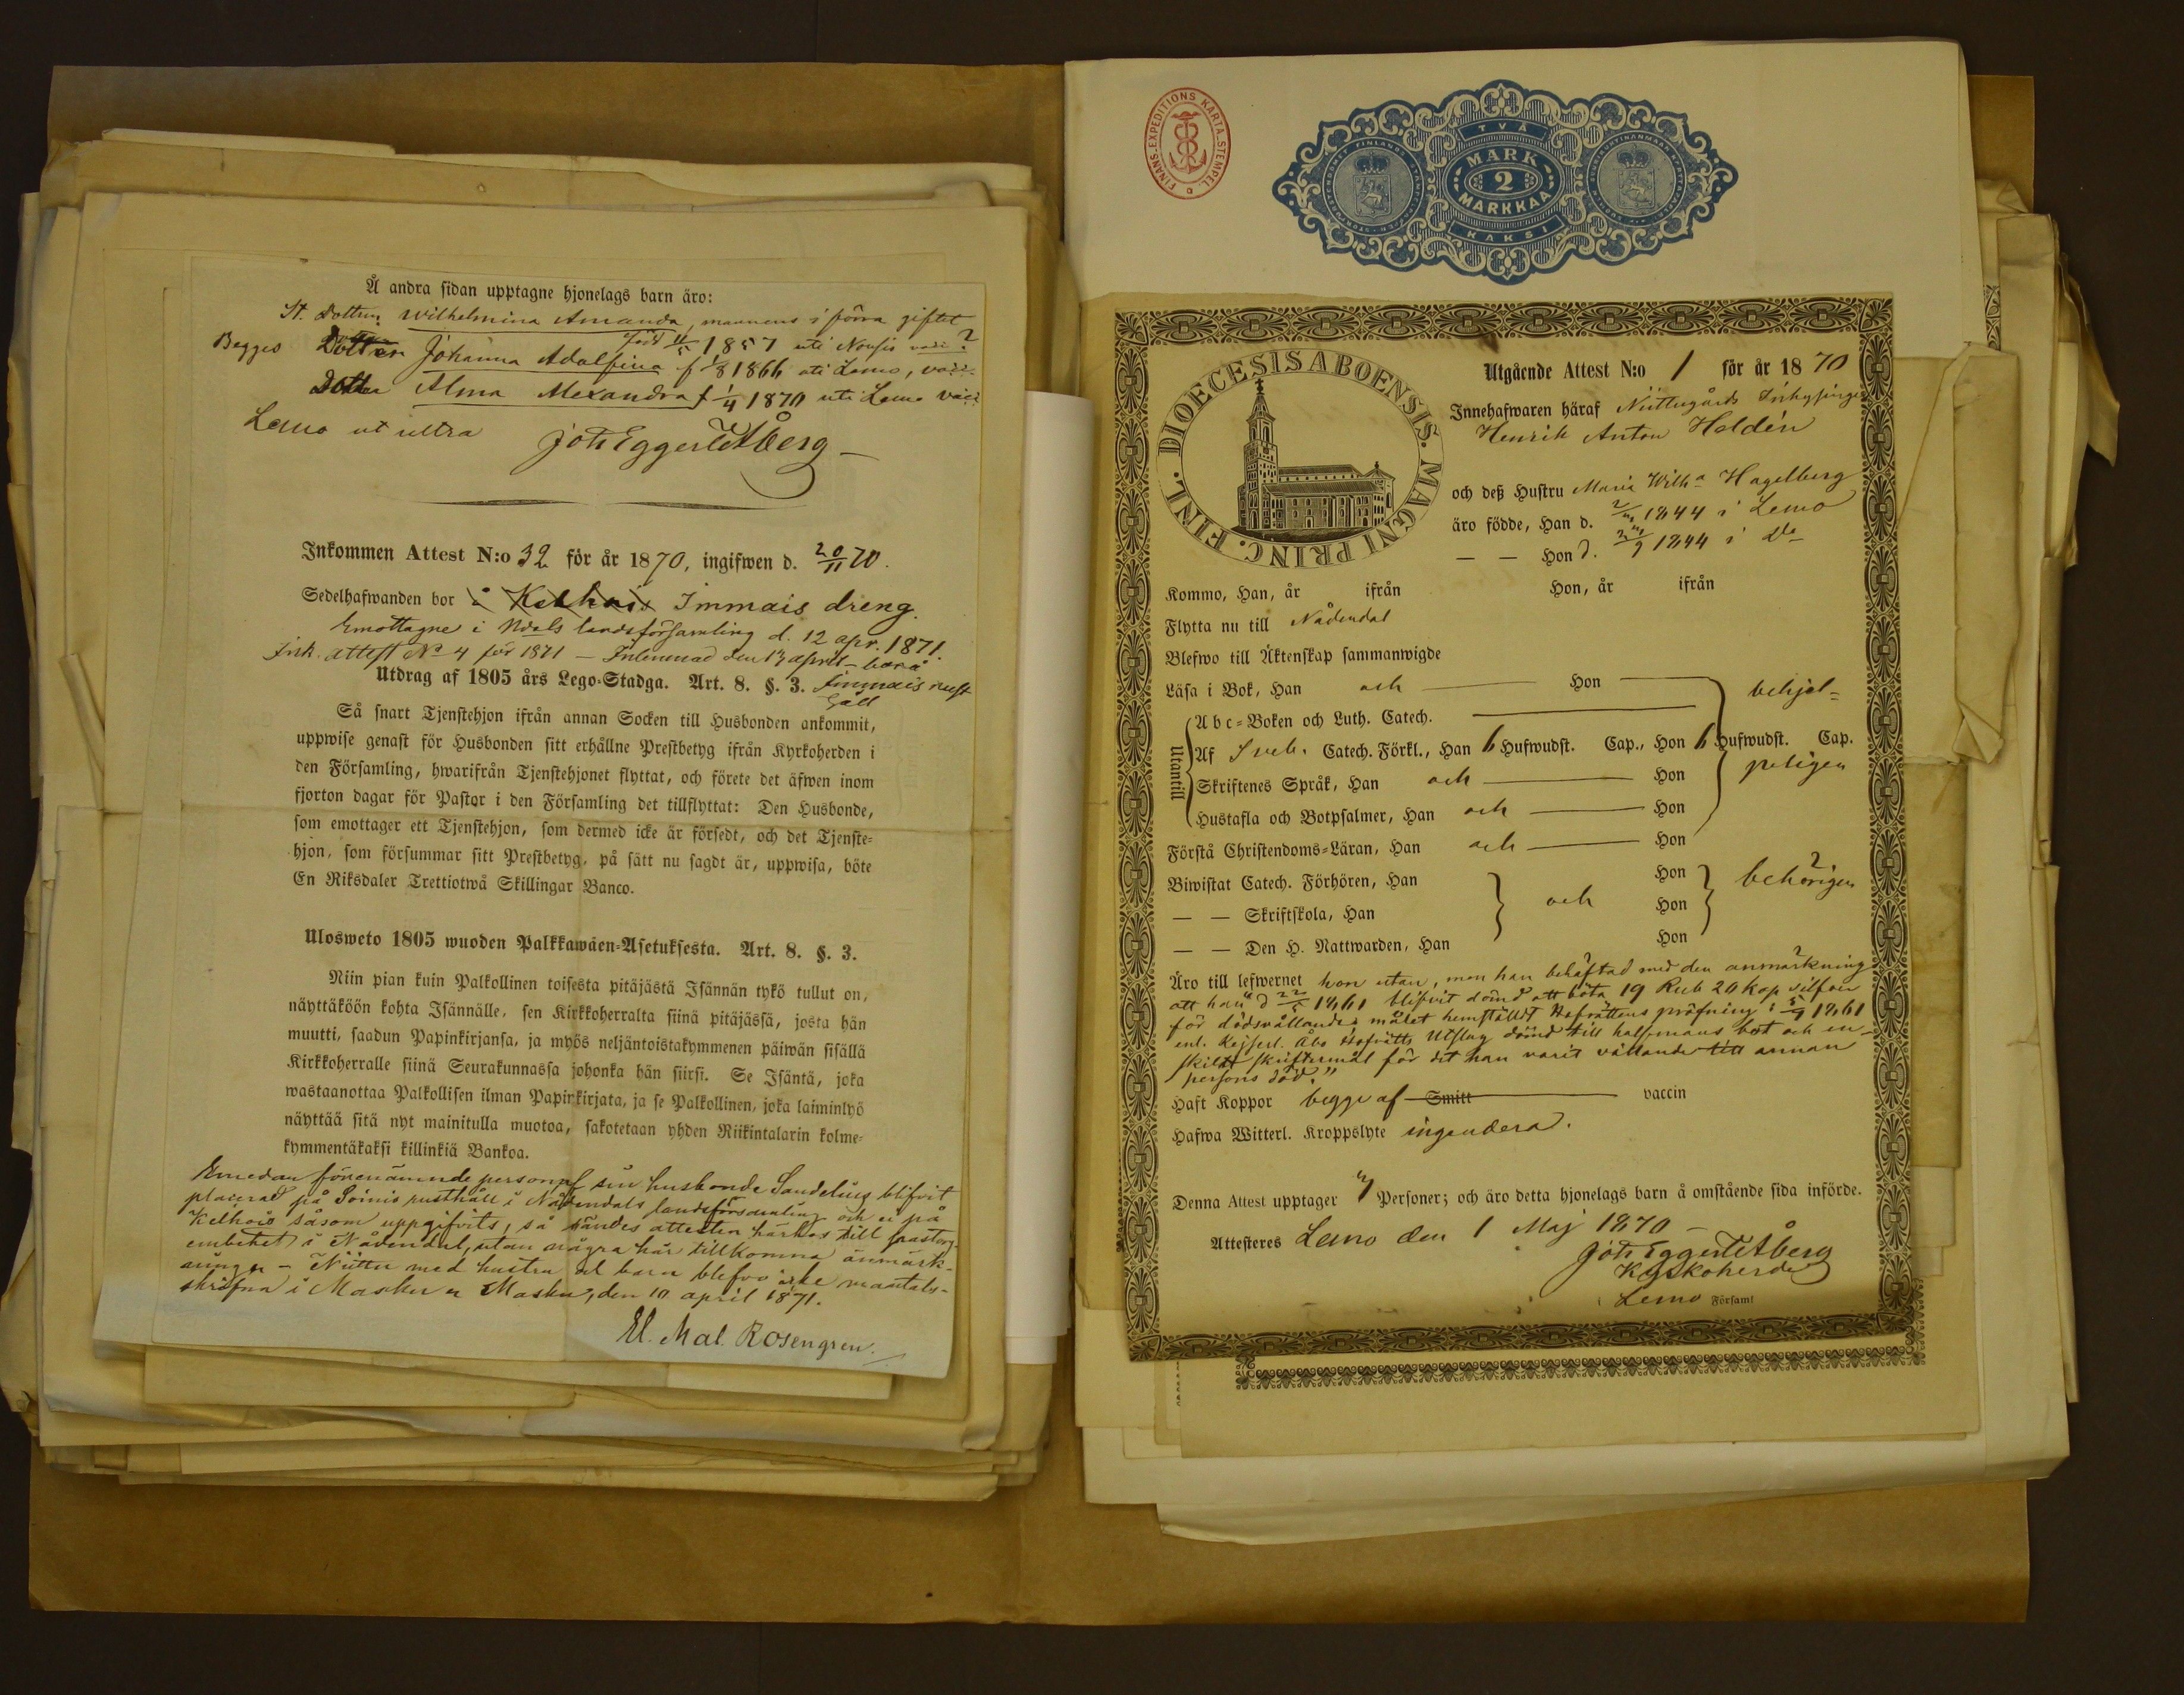 Å andra sidan upptagne hjonelags barn äro:
St. Dottern Wilhelmina Amanda, mannens i förra giftet
född 11/5 1857 uti Nousis
Begges Dottren Johanna Adolfina f 1/8 1866 uti Lemo,
Dottr Alma Alexandra f 1/4 1870 uti Lemo
Lemo ut ultra Joh Eggert Åberg
Inkommen Attest N:o 32 för år 1870, ingifwen d. 20/11 70.
Sedelhafwanden bor å Kelhois Immais dreng.
Emottagne i Ndals landsförsamling d. 12 apr. 1871.
Ink. attest No 4 för 1871 — Inlemnad den 13 april — bor å
Immais rust
håll
Utdrag af 1805 års Lego-Stadga. Art. 8. §. 3.
Så snart Tjenstehjon ifrån annan Socken till Husbonden ankommit,
uppwise genast för Husbonden sitt erhållne Prestbetyg ifrån Kyrkoherden i
den Församling, hwarifrån Tjenstehjonet flyttat, och förete det äfwen inom
fjorton dagar för Pastor i den Församling det tillflyttat: Den Husbonde,
som emottager ett Tjenstehjon, som dermed icke är försedt, och det Tjenste-
hjon, som försummar sitt Prestbetyg, på sätt nu sagdt är, uppwisa, böte
En Riksdaler Trettiotwå Skillingar Banco.
Ulosweto 1805 wuoden Palkkawäen-Asetuksesta. Art. 8. §. 3.
Niin pian kuin Palkollinen toisesta pitäjästä Isännän tykö tullut on,
näyttäköön kohta Isännälle, sen Kirkkoherralta siinä pitäjässä, josta hän
muutti, saadun Papinkirjansa, ja myös neljäntoistakymmenen päiwän sisällä
Kirkkoherralle siinä Seurakunnassa johonka hän siirsi. Se Isäntä, joka
wastaanottaa Palkollisen ilman Papinkirjata, ja se Palkollinen, joka laiminlyö
näyttää sitä nyt mainitulla muotoa, sakotetaan yhden Riikintalarin kolme-
kymmentäkaksi killinkiä Bankoa.
Emedan förenämnde person af sin husbonde Sandelius blifvit
placerad på Soinis rusthåll i Nådendals landsförsamling och ej på
Kelhois såsom uppgifvits, så sändes attesten härhos till pastors-
embetet i Nådendal, utan några här tillkomna anmärk-
ningar — Niittu med hustru och barn blefvo icke mantals-
skrifna i Masku. Masku, den 10 april 1871.
El. Mal. Rosengren.
FINANS-EXPEDITIONS KARTA.STEMPEL.
TVÅ
MARK
2
MARKKAA
KAKSI
DIOECESIS ABOENSIS. MAGNI PRINC. FINL.
Utgående Attest N:o 1 för år 1870
Innehafwaren häraf Niittugårds Inhysing
Henrik Anton Heldén
och deß Hustru Maria Wilha Hagelberg
äro födde, Han d. 1844 i Lemo
— — Hon d. 1844 i Do
Kommo, Han, år ifrån Hon, år ifrån
Flytta nu till Nådendal
Blefwo till Äktenskap sammanwigde
Läsa i Bok, Han och Hon behjel-
Utantill
Abc-Boken och Luth. Catech.
Af Sveb. Catech. Förkl., Han 6 Hufwudst. Cap., Hon 6 Hufwudst. Cap.
Skriftenes Språk, Han och Hon peligen
Hustafla och Botpsalmer, Han och Hon
Förstå Christendoms-Läran, Han och Hon
Biwistat Catech. Förhören, Han Hon
— — Skriftskola, Han och Hon behörigen
— — Den H. Nattwarden, Han Hon
Äro till lefwernet hon utan, men han behäftad med den anmärkning
att han d 22/5 1861 blifvit dömd att böta 19 Rub 20 Kop silfver
för dödsvållande; målet hemställdt Hofrättens pröfning; 5/9 1861
enl. Kejserl. Åbo Hofrätts Utslag dömd till half mans bot och en-
skildt skriftermål för det han varit vållande till annan
persons död."
Haft Koppor begge af Smitt vaccin
Hafwa Witterl. Kroppslyte ingendera.
Denna Attest upptager Personer; och äro detta hjonelags barn å omstående sida införde.
Attesteres Lemo den 1 Maj 1870 —
Joh Eggert Åberg
Kyrkoherde
Lemo Församl